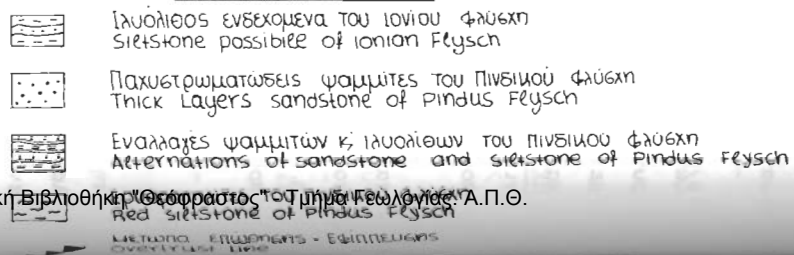 Ιλυόλιθος ενδεχομενα του ιονίου φλύσχη
Siltstone possible of ionian Flysch
Παχυστρωματώδεις ψαμμίτες του Πινδικού φλύσχη
Thick Layers sandstone of Pindus Flysch
Εναλλαγές ψαμμιτών κ; ιλυολίθων του πινδικού φλύσχη
Alternations of sandstone and siltstone of Pindus Flysch
κή Βιβλιοθήκη "Θεόφραστος" - Τμήμα Γεωλογίας. Α.Π.Θ.
του Πινδικού φλύσχη
Red siltstone of Pindus Flysch
μετωπα επωθησης - εφιππευσης
overtrust line